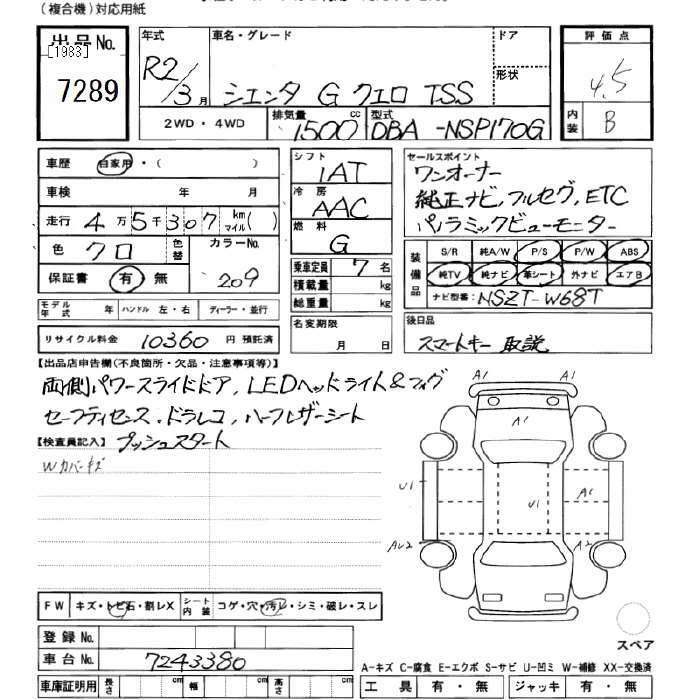 (複合機)対応用紙
出品No.
[1983]
7289
年式
R2/3月
車名・グレード
シエンタ G クエロ TSS
ドア
形状
評価点
4.5
内装
B
2WD・4WD
排気量
1500cc
型式
DBA-NSP170G
車歴 自家用・( )
車検 年 月
走行 4万5千307 km マイル( )
色 クロ 色替 カラーNo. 209
保証書 有 無
モデル年式 年 ハンドル 左・右 ディーラー・並行
リサイクル料金 10360 円 預託済
シフト
IAT
冷房
AAC
燃料
G
乗車定員 7名
積載量 kg
総重量 kg
名変期限
月 日
セールスポイント
ワンオーナー
純正ナビ,フルセグ,ETC
パノラミックビューモニター
装備品
S/R 純A/W P/S P/W ABS
純TV 純ナビ 革シート 外ナビ エアB
ナビ型番: NSZT-W68T
後日品
スマートキー 取説
【出品店申告欄(不良箇所・欠品・注意事項等)】
両側パワースライドドア,LEDヘッドライト&フォグ
セーフティセンス,ドラレコ,ハーフレザーシート
【検査員記入】 プッシュスタート
Wカバーキズ
A1 A1
A1
U1 U1 A1
AU2 A2
FW キズ・トビ石・割レX シート内装 コゲ・穴・汚レ・シミ・破レ・スレ
登録No.
車台No. 7243380
車庫証明用 長さ cm 幅 cm 高さ cm
スペア
A-キズ C-腐食 E-エクボ S-サビ U-凹ミ W-補修 XX-交換済
工具 有・無 ジャッキ 有・無